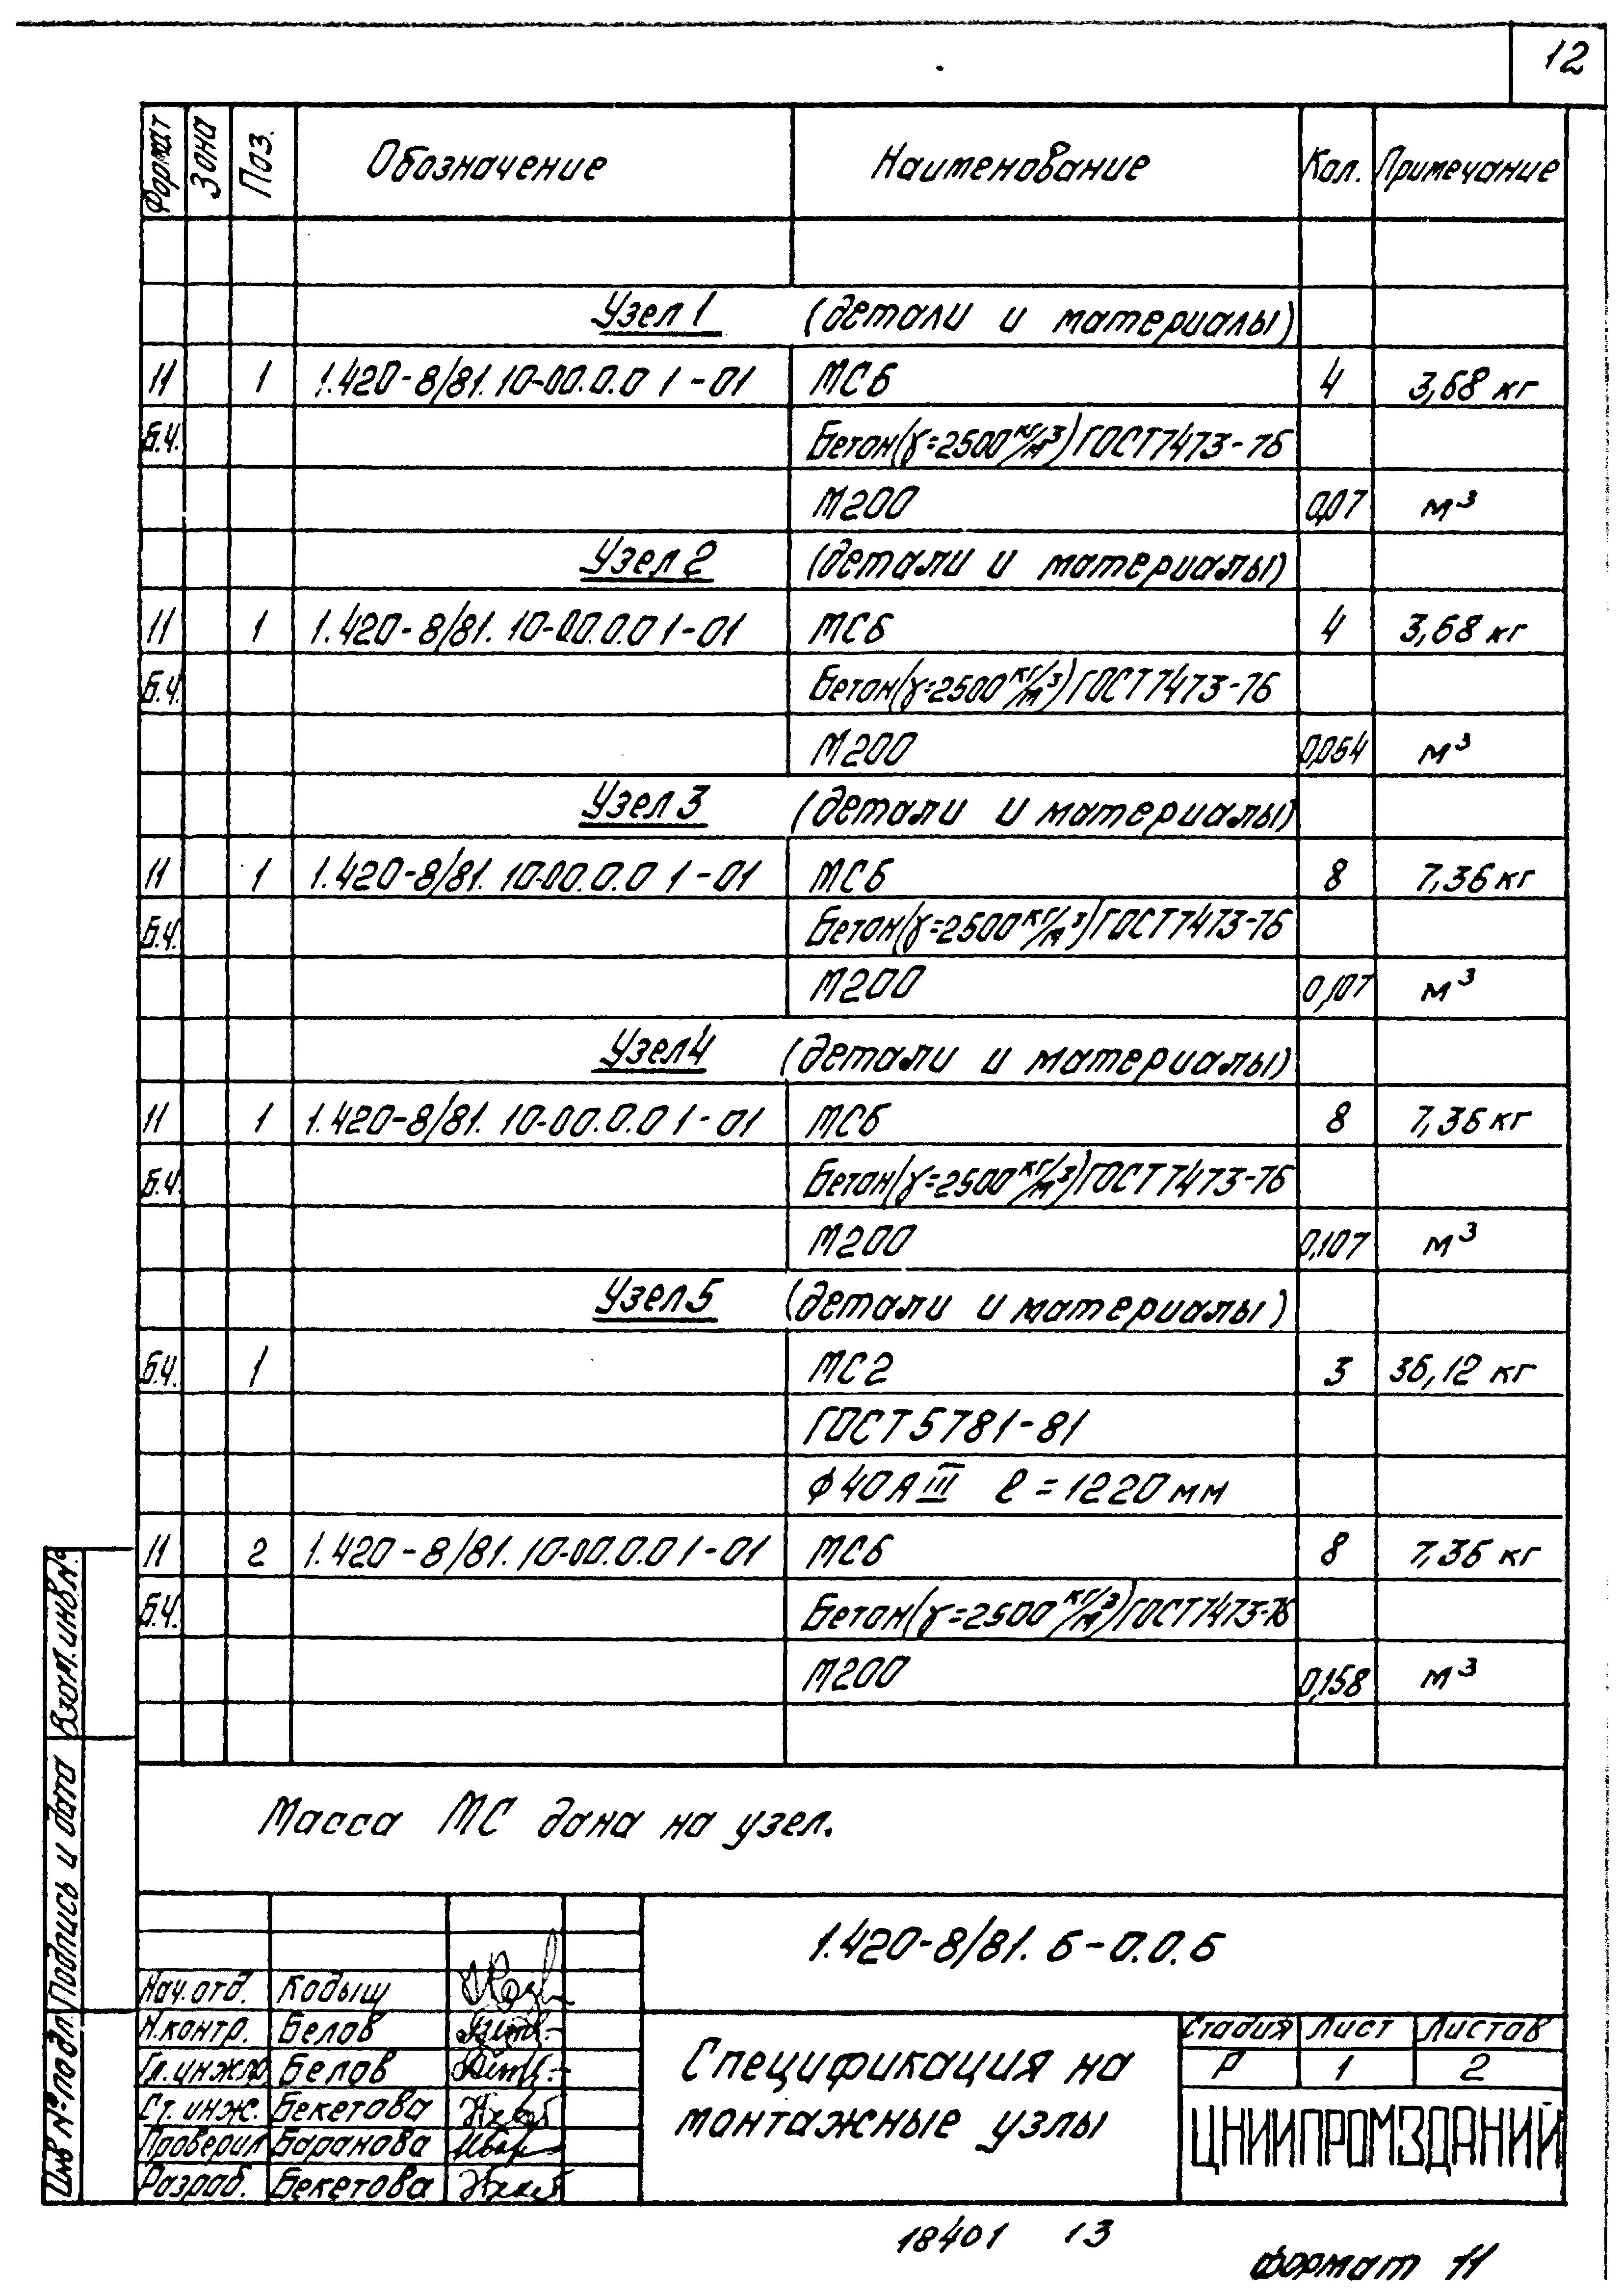 12
Формат Зона Поз. Обозначение Наименование Кол. Примечание
Узел 1 (детали и материалы)
11 1 1.420-8/81.10-00.0.0 1-01 МС6 4 3,68 кг
Б.Ч. Бетон(γ=2500кг/м³)ГОСТ7473-76
М200 0,07 м³
Узел 2 (детали и материалы)
11 1 1.420-8/81.10-00.0.0 1-01 МС6 4 3,68 кг
Б.Ч. Бетон(γ=2500кг/м³)ГОСТ7473-76
М200 0,054 м³
Узел 3 (детали и материалы)
11 1 1.420-8/81.10-00.0.0 1-01 МС6 8 7,36 кг
Б.Ч. Бетон(γ=2500кг/м³)ГОСТ7473-76
М200 0,107 м³
Узел 4 (детали и материалы)
11 1 1.420-8/81.10-00.0.0 1-01 МС6 8 7,36 кг
Б.Ч. Бетон(γ=2500кг/м³)ГОСТ7473-76
М200 0,107 м³
Узел 5 (детали и материалы)
Б.Ч. 1 МС2 3 36,12 кг
ГОСТ 5781-81
ϕ 40АIII ℓ = 1220 мм
11 2 1.420-8/81.10-00.0.0 1-01 МС6 8 7,36 кг
Б.Ч. Бетон(γ=2500кг/м³)ГОСТ7473-76
М200 0,158 м³
Масса МС дана на узел.
Взам.инв.№
Подпись и дата
Инв №подл.
1.420-8/81.6-0.0.6
Нач.отд. Кодыш
Н.контр. Белов
Гл.инж.пр Белов
Ст.инж. Бекетова
Проверил Баранова
Разраб. Бекетова
Спецификация на
монтажные узлы
Стадия Лист Листов
Р 1 2
ЦНИИПРОМЗДАНИЙ
18401 13
Формат 11